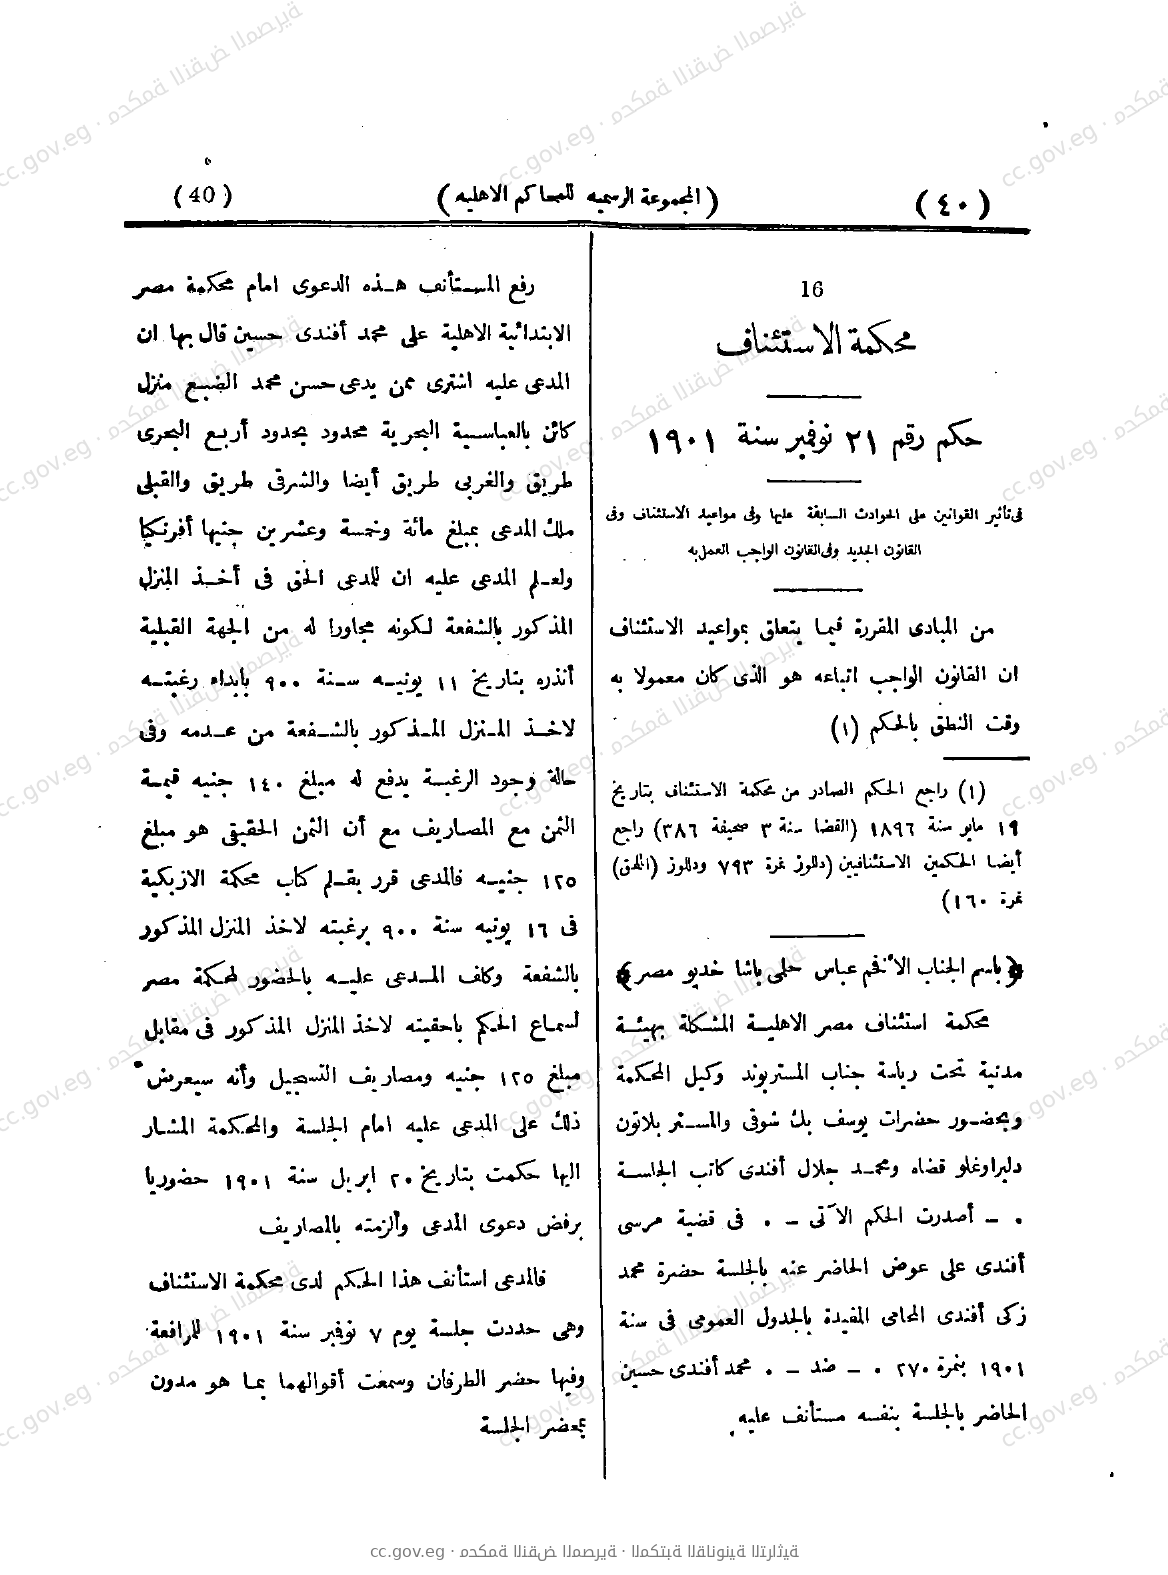 (٤٠)
(المجموعة الرسميه للمحاكم الاهليه)
(40)
16
محكمة الاستئناف
حكم رقم ٢١ نوفمبر سنة ١٩٠١
فى تأثير القوانين على الحوادث السابقة عليها وفى مواعيد الاستئناف وفى
القانون الجديد وفى القانون الواجب العمل به
من المبادى المقررة فيما يتعلق بمواعيد الاستئناف
ان القانون الواجب اتباعه هو الذى كان معمولا به
وقت النطق بالحكم (١)
(١) راجع الحكم الصادر من محكمة الاستئناف بتاريخ
١٩ مايو سنة ١٨٩٦ (القضا سنة ٣ صحيفة ٣٨٦) راجع
أيضا الحكمين الاستئنافيين (دللوز نمرة ٧٩٣ ودللوز (الملحق)
نمرة ١٦٠)
﴿باسم الجناب الأفخم عباس حلمى باشا خديو مصر﴾
محكمة استئناف مصر الاهلية المشكلة بهيئة
مدنية تحت رياسة جناب المستربوند وكيل المحكمة
وبحضور حضرات يوسف بك شوقى والمستر بلاتون
دلبراوغلو قضاه ومحمد جلال أفندى كاتب الجلسة
٠ ـ أصدرت الحكم الآتى ـ ٠ فى قضية مرسى
أفندى على عوض الحاضر عنه بالجلسة حضرة محمد
زكى أفندى المحامى المقيدة بالجدول العمومى فى سنة
١٩٠١ بنمرة ٢٧٠ ٠ ـ ضد ـ ٠ محمد أفندى حسين
الحاضر بالجلسة بنفسه مستأنف عليه.
رفع المستأنف هذه الدعوى امام محكمة مصر
الابتدائية الاهلية على محمد أفندى حسين قال بها ان
المدعى عليه اشترى ممن يدعى حسن محمد الضبع منزل
كائن بالعباسية البحرية محدود بحدود أربع البحرى
طريق والغربى طريق أيضا والشرقى طريق والقبلى
ملك المدعى بمبلغ مائة وخمسة وعشرين جنيها أفرنكيا
ولعلم المدعى عليه ان للمدعى الحق فى أخذ المنزل
المذكور بالشفعة لكونه مجاورا له من الجهة القبلية
أنذره بتاريخ ١١ يونيه سنة ٩٠٠ بابداء رغبته
لاخذ المنزل المذكور بالشفعة من عدمه وفى
حالة وجود الرغبة يدفع له مبلغ ١٤٠ جنيه قيمة
الثمن مع المصاريف مع أن الثمن الحقيقى هو مبلغ
١٢٥ جنيه فالمدعى قرر بقلم كتاب محكمة الازبكية
فى ١٦ يونيه سنة ٩٠٠ برغبته لاخذ المنزل المذكور
بالشفعة وكلف المدعى عليه بالحضور لمحكمة مصر
لسماع الحكم باحقيته لاخذ المنزل المذكور فى مقابل
مبلغ ١٢٥ جنيه ومصاريف التسجيل وأنه سيعرض
ذلك على المدعى عليه امام الجلسة والمحكمة المشار
اليها حكمت بتاريخ ٢٠ ابريل سنة ١٩٠١ حضوريا
برفض دعوى المدعى وألزمته بالمصاريف
فالمدعى استأنف هذا الحكم لدى محكمة الاستئناف
وهى حددت جلسة يوم ٧ نوفمبر سنة ١٩٠١ للمرافعة
وفيها حضر الطرفان وسمعت أقوالهما بما هو مدون
بمحضر الجلسة
cc.gov.eg · محكمة النقض المصرية · المكتبة القانونية التراثية